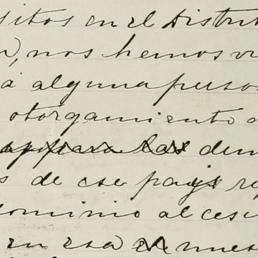 sitos en el Distrit
, nos hemos v
á alguna perso
otorgamiento d
para las dem
s de ese pays re
dominio al ces
en esa en nues